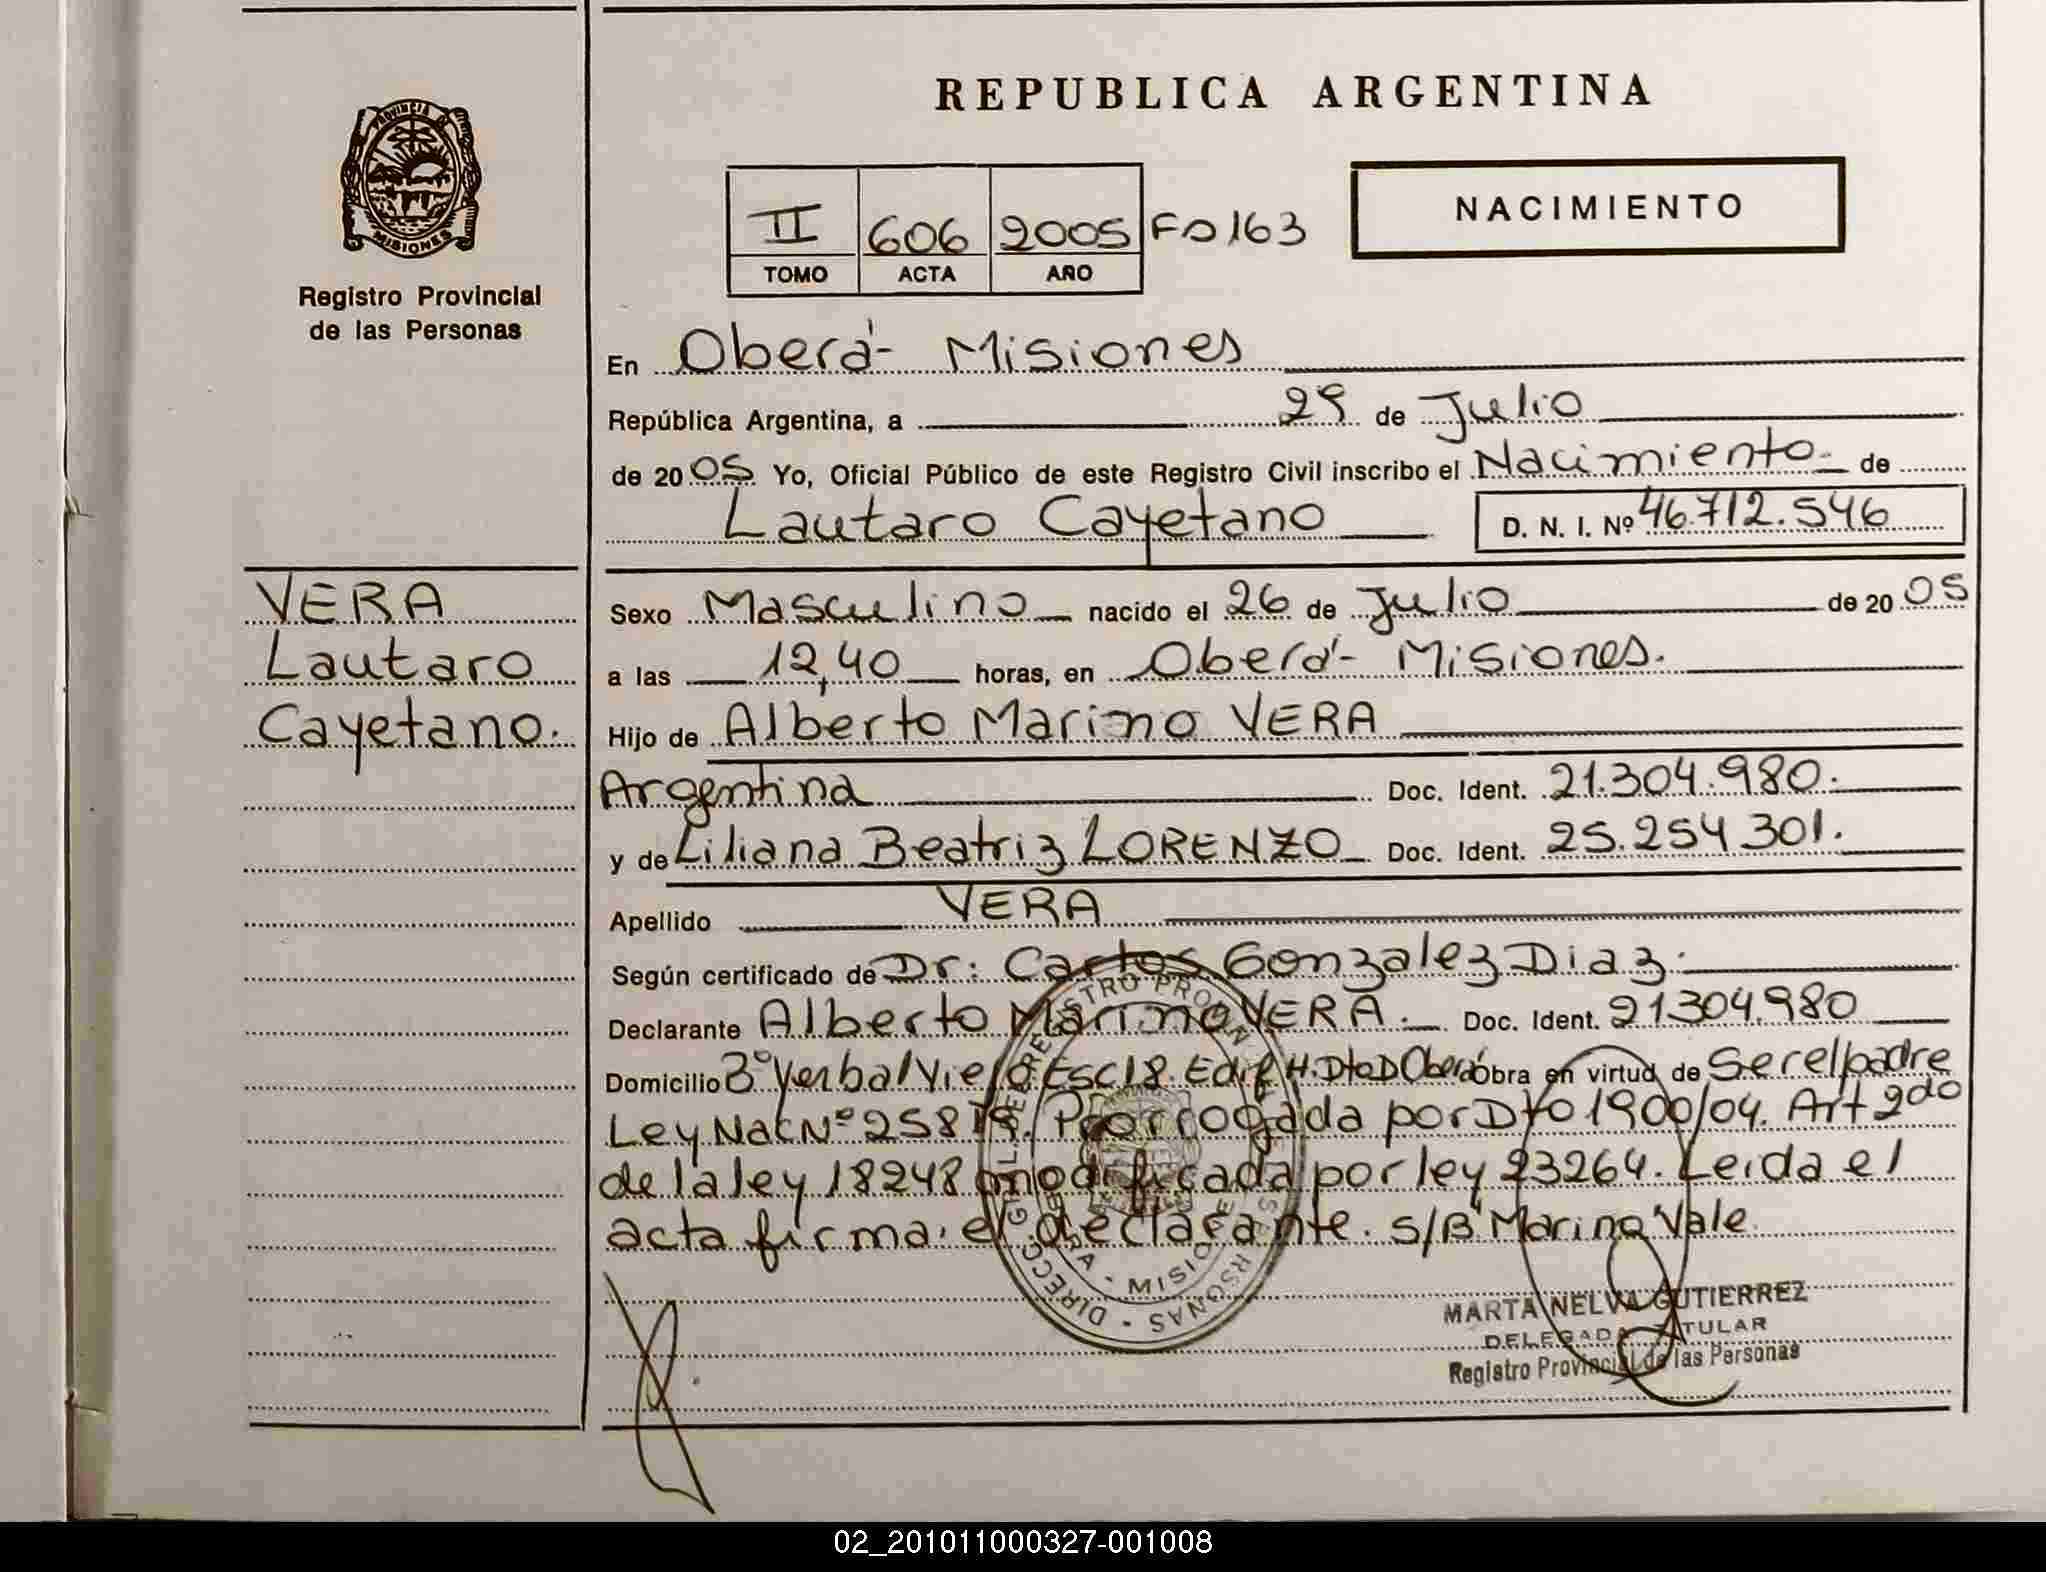 REPUBLICA ARGENTINA
PROVINCIA DE
MISIONES
Registro Provincial
de las Personas
II 606 2005 Fo 163
TOMO ACTA AÑO
NACIMIENTO
En Oberá - Misiones
República Argentina, a 29 de Julio
de 2005 Yo, Oficial Público de este Registro Civil inscribo el Nacimiento de
Lautaro Cayetano D. N. I. Nº 46.712.546
VERA
Lautaro
Cayetano.
Sexo Masculino nacido el 26 de Julio de 2005
a las 12,40 horas, en Oberá - Misiones.
Hijo de Alberto Marino VERA
Argentina Doc. Ident. 21.304.980.
y de Liliana Beatriz LORENZO Doc. Ident. 25.254 301.
Apellido VERA
Según certificado de Dr: Carlos Gonzalez Diaz.
Declarante Alberto Marino VERA. Doc. Ident. 21304.980
Domicilio 3º Yerbal Viejo Esc 18. Edif H. Dto D Oberá obra en virtud de Ser el padre
Ley Nac Nº 25819. Prorrogada por Dto 1900/04. Art 2do
de la ley 18248 modificada por ley 23264. Leida el
acta firma: el declarante. S/B "Marino" Vale.
MARTA NELVA GUTIERREZ
DELEGADA TITULAR
Registro Provincial de las Personas
02_201011000327-001008